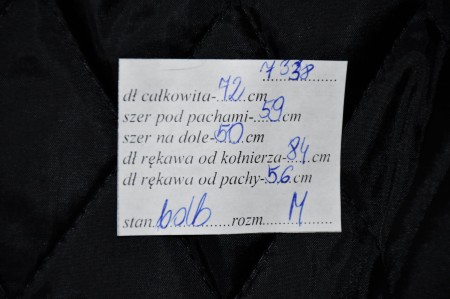 7338
dł całkowita-72cm
szer pod pachami-59cm
szer na dole-50cm
dł rękawa od kołnierza-84cm
dł rękawa od pachy-56cm
stan bdb rozm M